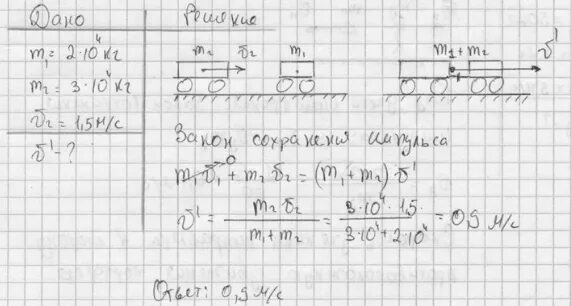 Дано
Решение
m₁ = 2·10⁴ кг
m₂ = 3·10⁴ кг
υ₂ = 1,5 м/с
υ' - ?
m₂ υ₂ m₁ m₁+m₂ υ'
Закон сохранения импульса
m₁υ₁ 0 + m₂υ₂ = (m₁+m₂)υ'
υ' = m₂υ₂ / (m₁+m₂) = 3·10⁴·1,5 / (3·10⁴+2·10⁴) = 0,9 м/с
Ответ: 0,9 м/с